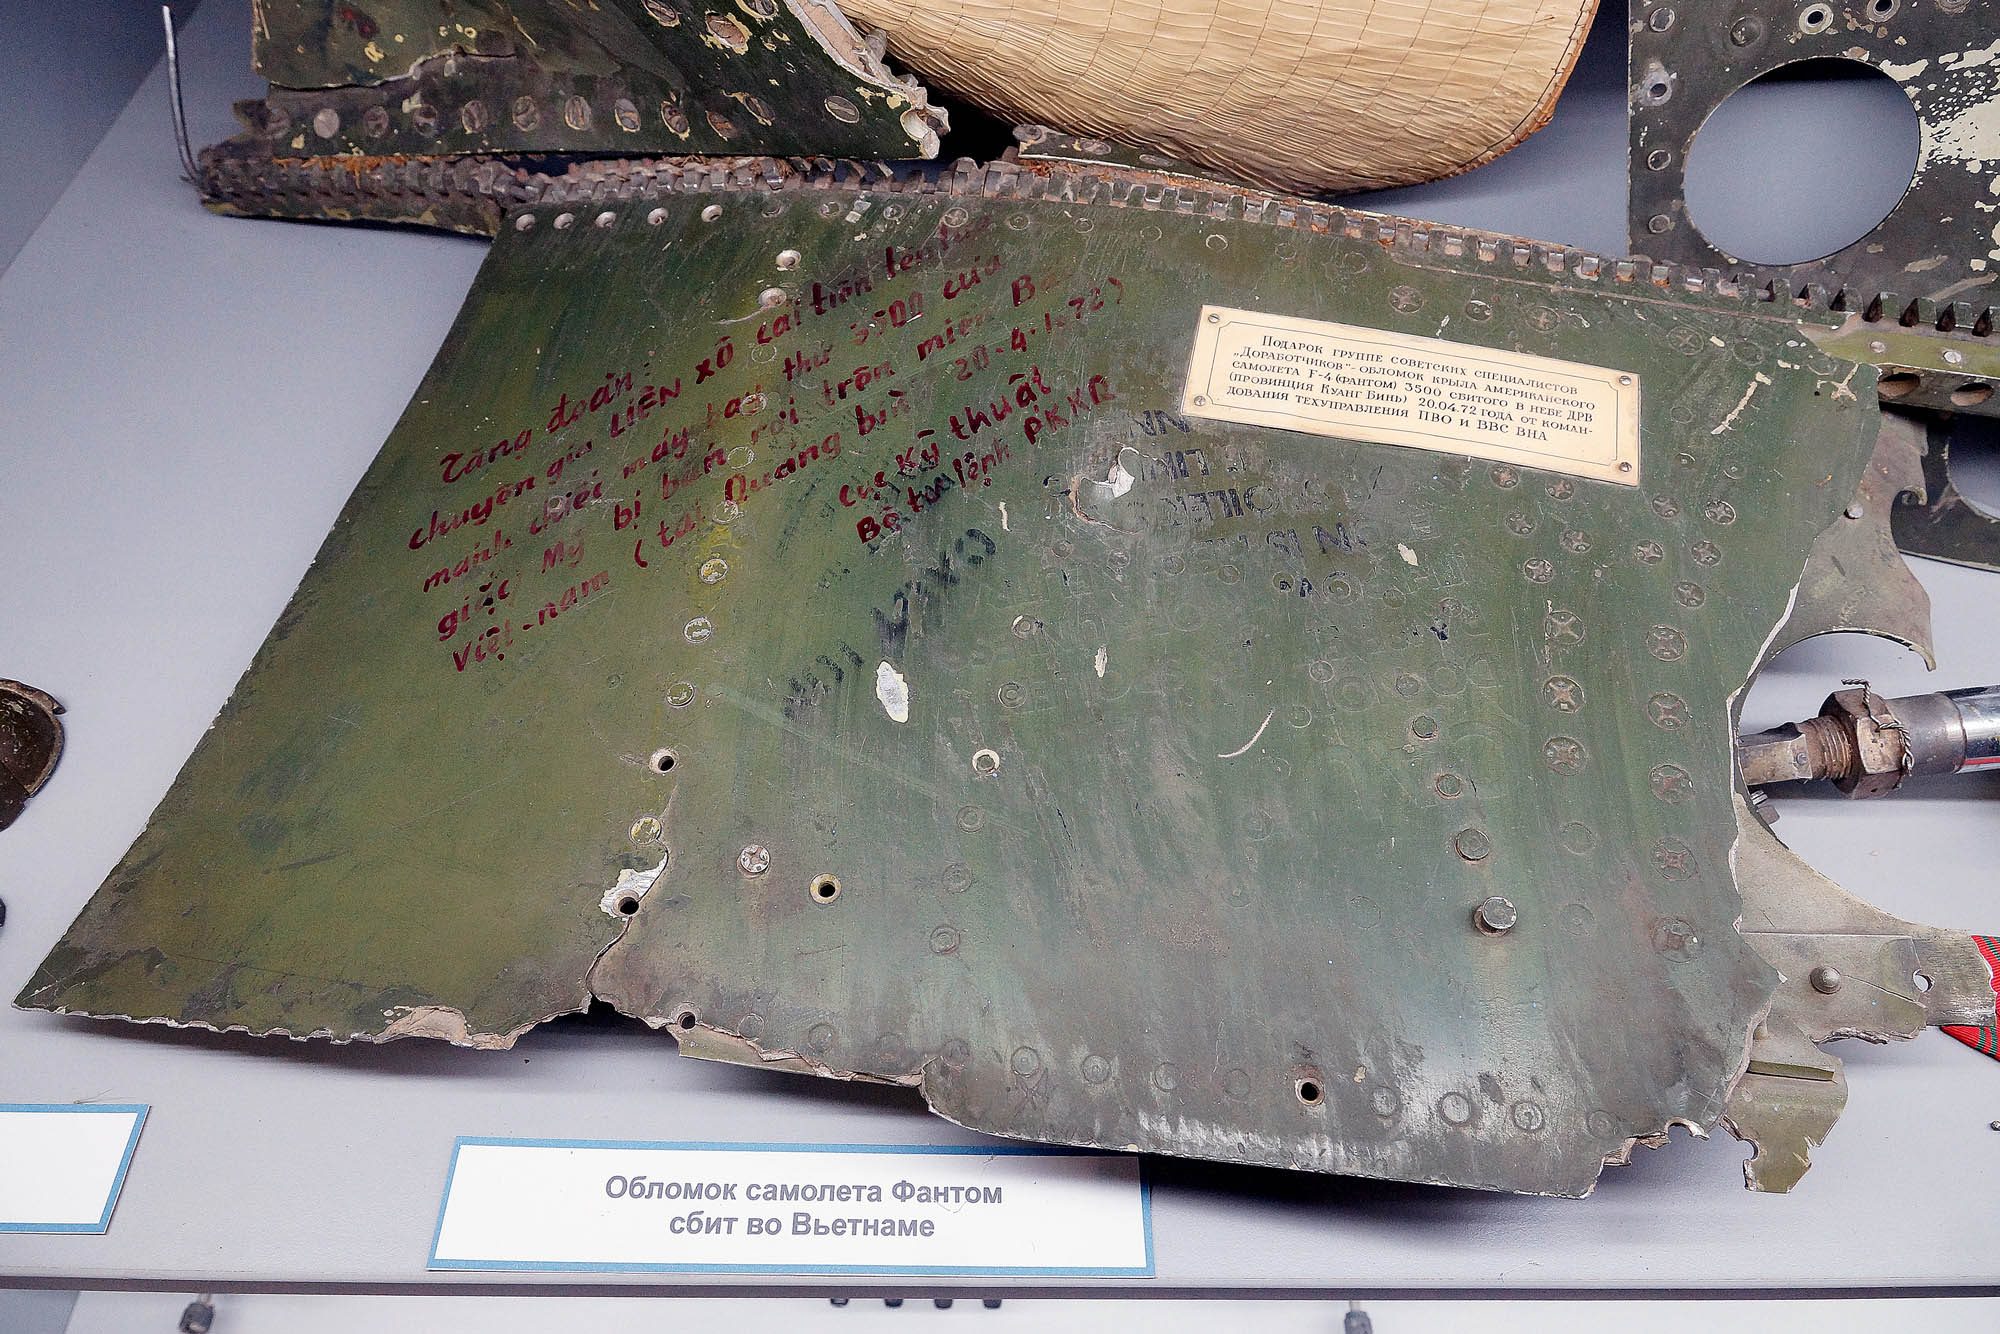 Tặng đoàn:
chuyên gia LIÊN XÔ cải tiến tên lửa
mảnh chiếc máy bay thứ 3500 của
giặc Mỹ bị bắn rơi trên miền Bắc
Việt-nam (tại Quang bình 20-4-1972)
Cục Kỹ thuật
Bộ tư lệnh PKKQ
Подарок группе советских специалистов
„Доработчиков"- обломок крыла американского
самолета F-4 (фантом) 3500 сбитого в небе ДРВ
(провинция Куанг Бинь) 20.04.72 года от коман-
дования техуправления ПВО и ВВС ВНА
Обломок самолета Фантом
сбит во Вьетнаме